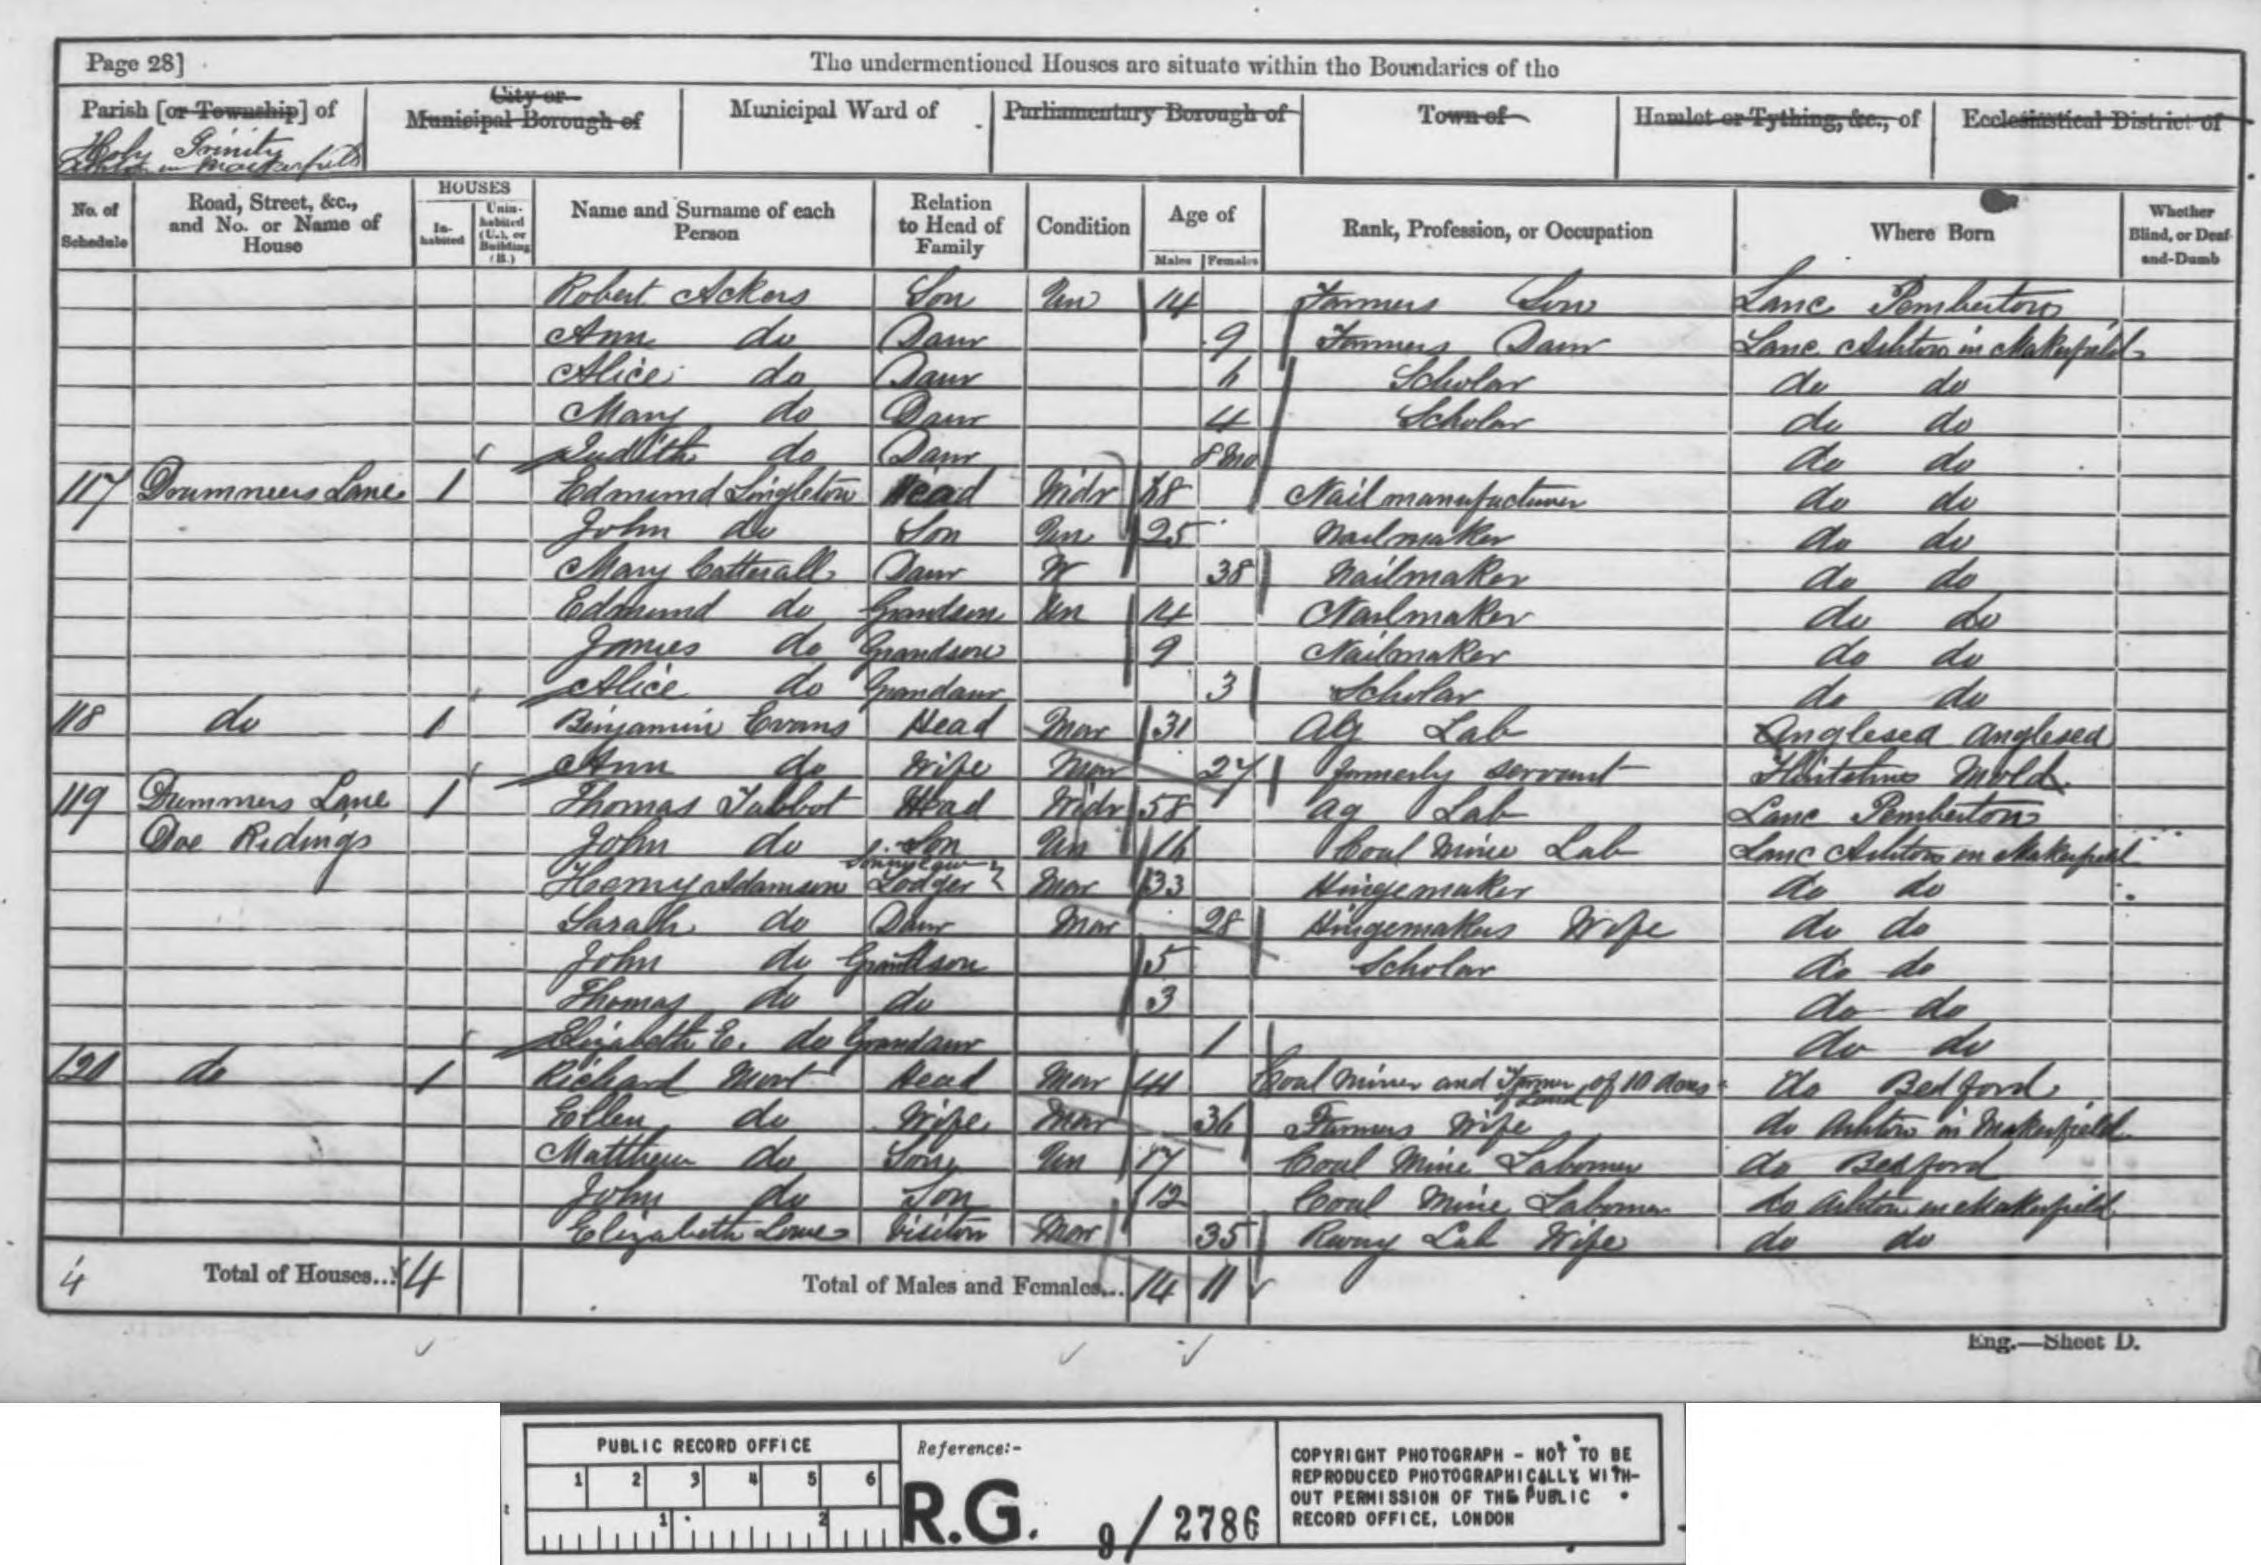 Page 28]
The undermentioned Houses are situate within the Boundaries of the
Parish [or Township] of
City or Municipal Borough of
Municipal Ward of
Parliamentary Borough of
Town of
Hamlet or Tything, &c., of
Ecclesiastical District of
Holy Trinity
in Mackerfield
No. of Schedule
Road, Street, &c., and No. or Name of House
HOUSES
In-habited
Unin-habited (U.), or Building (B.)
Name and Surname of each Person
Relation to Head of Family
Condition
Age of
Males
Females
Rank, Profession, or Occupation
Where Born
Whether Blind, or Deaf-and-Dumb
Robert Ackers Son Un 14 Farmers Son Lanc Pemberton
Ann do Daur 9 Farmers Daur Lanc Ashton in Makerfield
Alice do Daur 6 Scholar do do
Mary do Daur 4 Scholar do do
Judith do Daur 8 Mo do do
117 Drummers Lane 1 Edmund Singleton Head Widr 68 Nail manufacturer do do
John do Son Un 25 Nailmaker do do
Mary Catterall Daur W 38 Nailmaker do do
Edmund do Grandson Un 14 Nailmaker do do
James do Grandson 9 Nailmaker do do
Alice do Grandaur 3 Scholar do do
118 do 1 Binjamin Evans Head Mar 31 Ag Lab Anglesea Anglesea
Ann do Wife Mar 27 formerly servant Mold
119 Drummers Lane 1 Thomas Tabbot Head Widr 58 Ag Lab Lanc Pemberton
Doe Ridings John do Son Un 16 Coal Mine Lab Lanc Ashton in Makerfield
Henry Adamson Soninlaw Lodger Mar 33 Hingemaker do do
Sarah do Daur Mar 28 Hingemakers Wife do do
John do Grandson 5 Scholar do do
Thomas do do 3 do do
Elizabeth E. do Grandaur 1 do do
120 do 1 Richard Mort Head Mar 44 Coal Miner and Farmer of 10 Acres of Land do Bedford
Ellen do Wife Mar 36 Farmers Wife do Ashton in Makerfield
Matthew do Son Un 17 Coal Mine Labourer do Bedford
John do Son 12 Coal Mine Labourer do Ashton in Makerfield
Elizabeth Lowe Visitor Mar 35 Rway Lab Wife do do
4 Total of Houses... 4 Total of Males and Females... 14 11
Eng.—Sheet D.
PUBLIC RECORD OFFICE
1 2 3 4 5 6
1 2
Reference:-
R.G. 9/2786
COPYRIGHT PHOTOGRAPH - NOT TO BE
REPRODUCED PHOTOGRAPHICALLY WITH-
OUT PERMISSION OF THE PUBLIC
RECORD OFFICE, LONDON